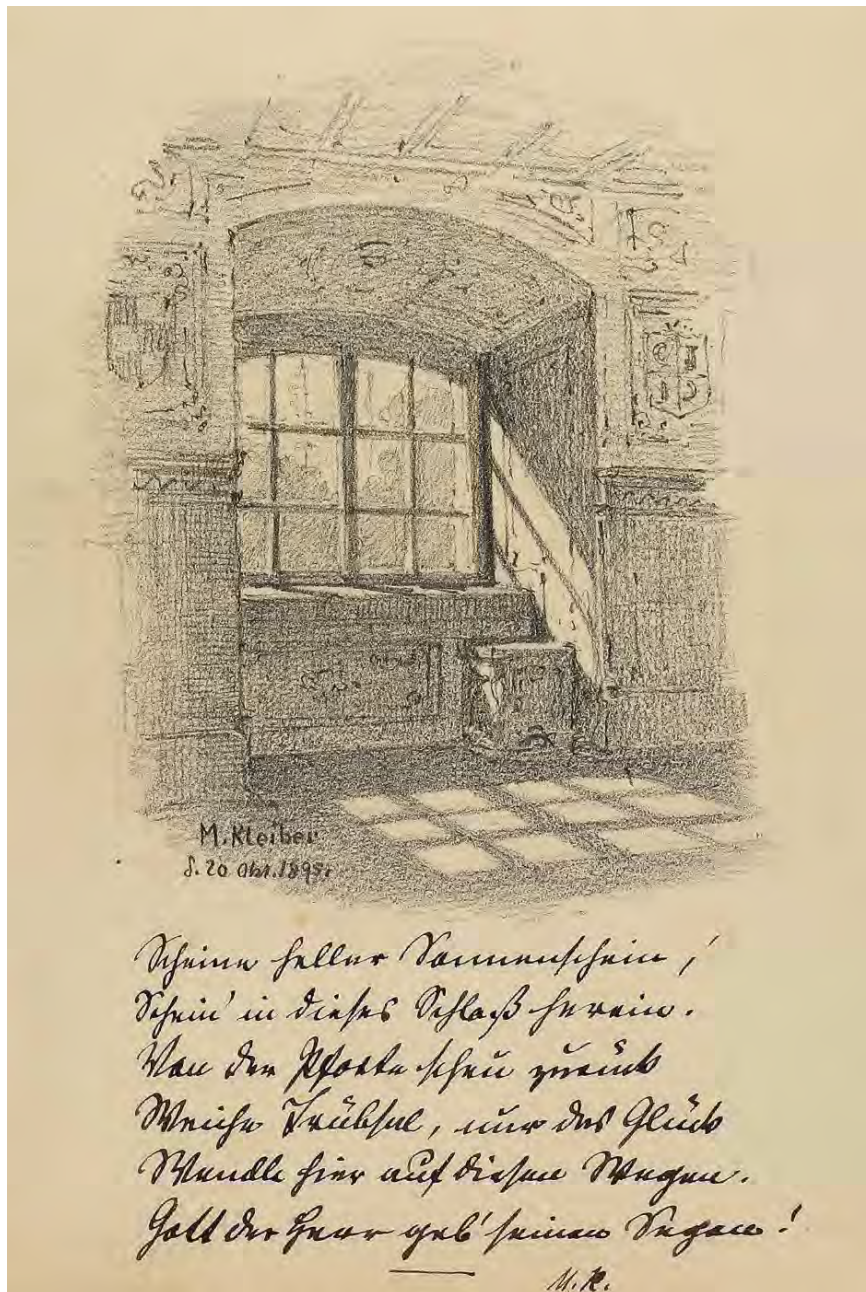 M. Kleiber
d. 20 Okt. 1895.
Scheine heller Sonnenschein!
Schein' in dieses Schloß herein.
Von der Pforte scheu zurück
Weiche Trübsal, nur das Glück
Wandle hier auf diesen Wegen.
Gott der Herr geb' seinen Segen!
M. K.